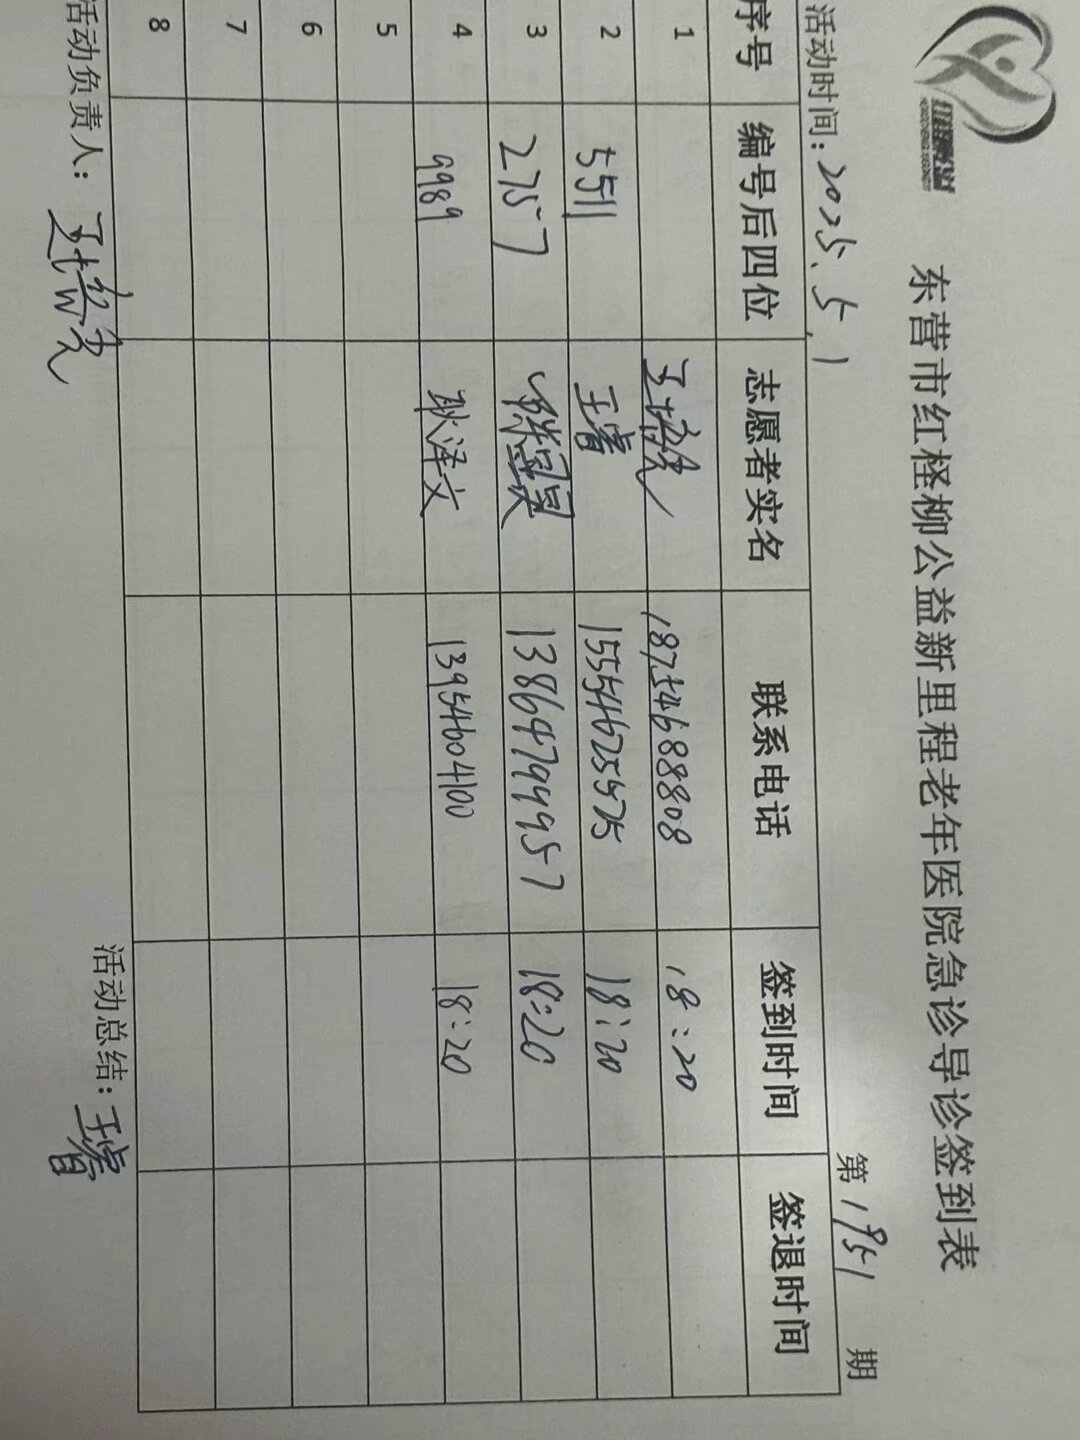 东营市红柽柳公益新里程老年医院急诊导诊签到表
活动时间：2025.5.1 第1951期
序号 编号后四位 志愿者实名 联系电话 签到时间 签退时间
1 18754688808 18:20
2 5511 王睿 15554625575 18:20
3 2757 13864799957 18:20
4 9989 耿泽文 13954604100 18:20
5
6
7
8
活动负责人： 活动总结：王睿